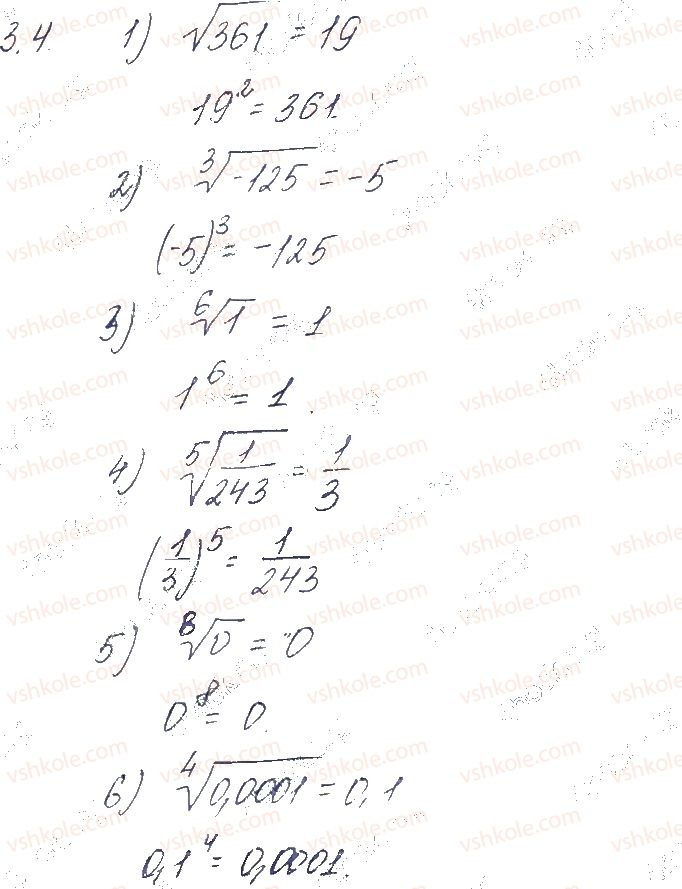 3.4 1) √361 = 19
19² = 361.
2) ³√-125 = -5
(-5)³ = -125
3) ⁶√1 = 1
1⁶ = 1.
4) ⁵√(1/243) = 1/3
(1/3)⁵ = 1/243
5) ⁸√0 = 0
0⁸ = 0.
6) ⁴√0,0001 = 0,1
0,1⁴ = 0,0001.
vshkole.com